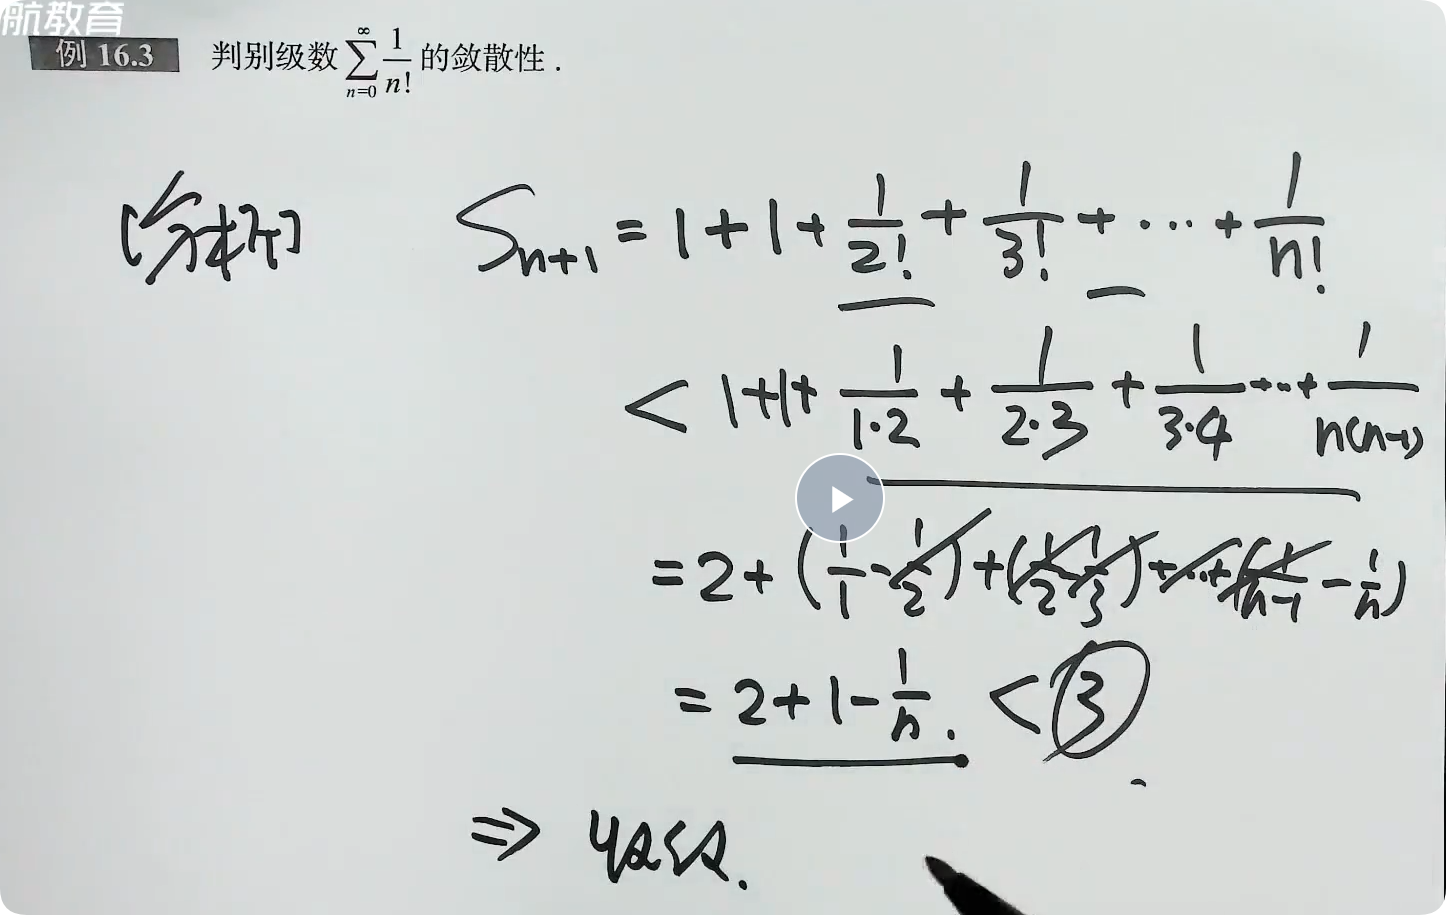 航教育
例 16.3 判别级数 ∑_{n=0}^{∞} 1/n! 的敛散性.
[分析] S_{n+1} = 1 + 1 + 1/2! + 1/3! + ⋯ + 1/n!
< 1+1+ 1/(1·2) + 1/(2·3) + 1/(3·4) +⋯+ 1/(n(n-1))
= 2 + (1/1 - 1/2) + (1/2 - 1/3) + ⋯ + (1/(n-1) - 1/n)
= 2 + 1 - 1/n . < 3 .
⇒ 收敛.